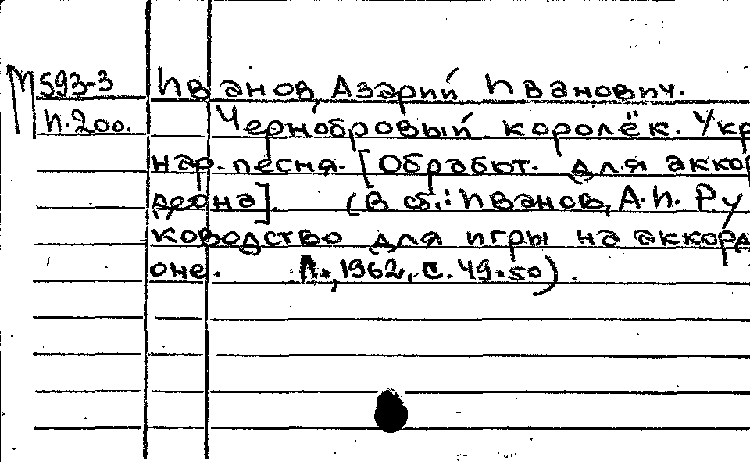 М593-3 Иванов, Азарий Иванович.
И.200. Чернобровый королёк. Укр
нар. песня. [Обработ. для аккор
деона]. (В сб.: Иванов, А.И. Ру
ководство для игры на аккорд
оне. Л., 1962, с. 49-50).